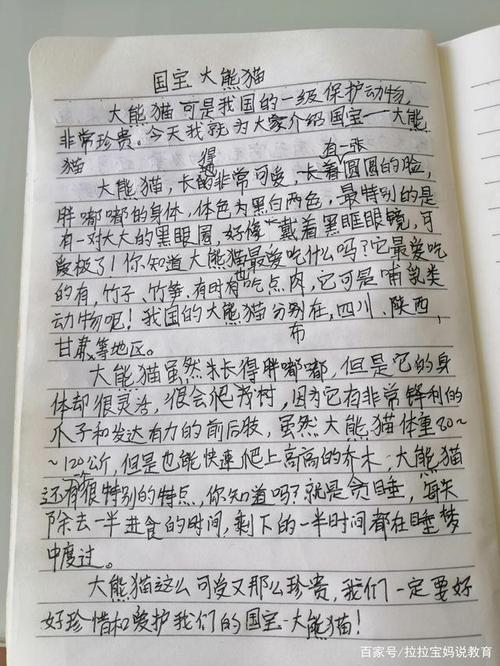 国宝大熊猫
大熊猫可是我国的一级保护动物,
非常珍贵。今天我就为大家介绍国宝——大熊
猫
得
有一张
大熊猫,长的非常可爱,长着圆圆的脸,
胖嘟嘟的身体,体色为黑白两色,最特别的是
有一对大大的黑眼圈,好像戴着黑眶眼镜,可
爱极了!你知道大熊猫最爱吃什么吗?它最爱吃
的有,竹子、竹笋、有时有吃点肉,它可是哺乳类
也
动物吧!我国的大熊猫分别在,四川、陕西,
布
甘肃等地区。
大熊猫虽然长得胖嘟嘟,但是它的身
体却很灵活,很会爬树,因为它有非常锋利的
爪子和发达有力的前后肢,虽然大熊猫体重80~
~120公斤,但是也能快速爬上高高的乔木,大熊猫
还有很特别的特点,你知道吗?就是贪睡,每天
除去一半进食的时间,剩下的一半时间都在睡梦
中度过。
大熊猫这么可爱又那么珍贵,我们一定要好
好珍惜和爱护我们的国宝-大熊猫!
百家号/拉拉宝妈说教育